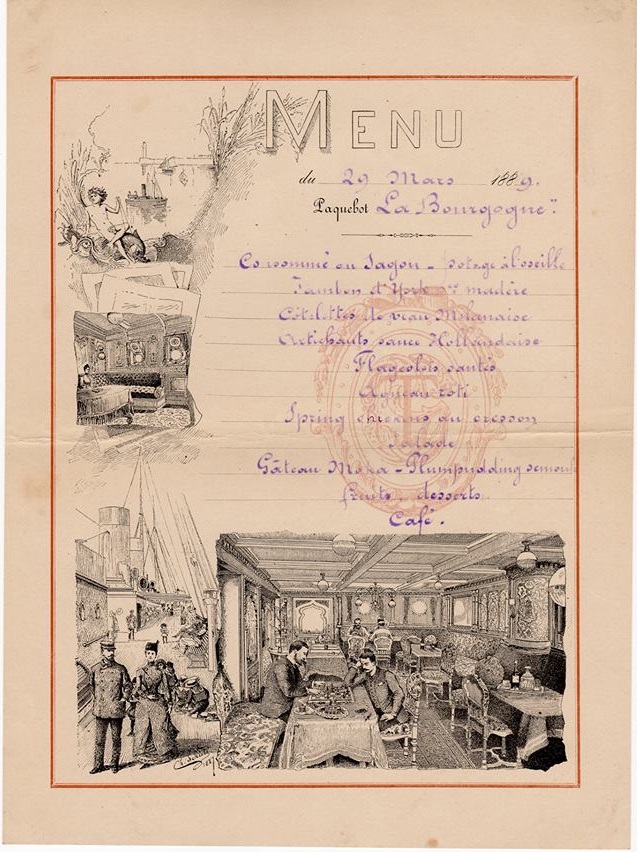 MENU
du 29 Mars 1889.
Paquebot La Bourgogne"
Consommé au Sagou - potage à l'oseille
Jambon d'York sce madère
Côtelettes de veau Milanaise
Artichauts sauce Hollandaise
Flageolets sautés
Agneau rôti
Spring chickens au cresson
Salade
Gâteau Moka - Plumpudding semoul
fruits, desserts
Café.